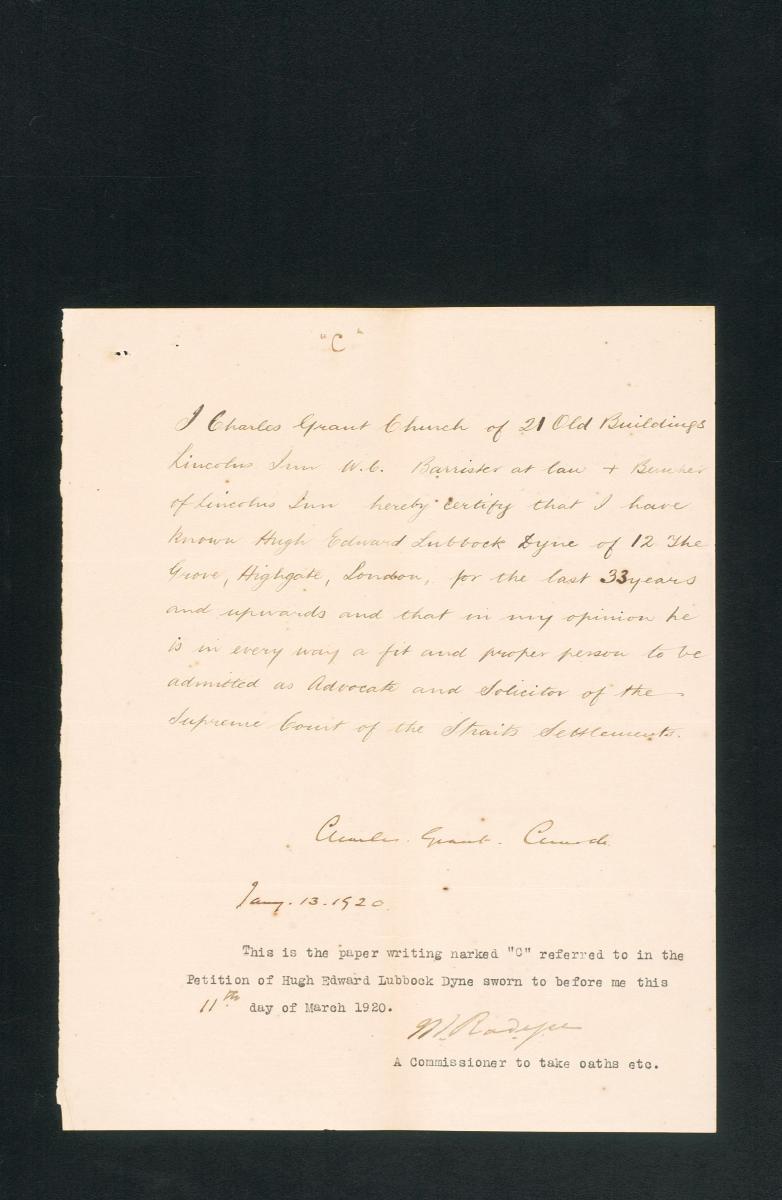 "C"
I Charles Grant Church of 21 Old Buildings
Lincolns Inn W.C. Barrister at law + Bencher
of Lincolns Inn hereby certify that I have
known Hugh Edward Lubbock Dyne of 12 The
Grove, Highgate, London, for the last 33 years
and upwards and that in my opinion he
is in every way a fit and proper person to be
admitted as Advocate and Solicitor of the
Supreme Court of the Straits Settlements.
Charles Grant Church
Jany. 13. 1920.
This is the paper writing narked "C" referred to in the
Petition of Hugh Edward Lubbock Dyne sworn to before me this
11th day of March 1920.
A Commissioner to take oaths etc.